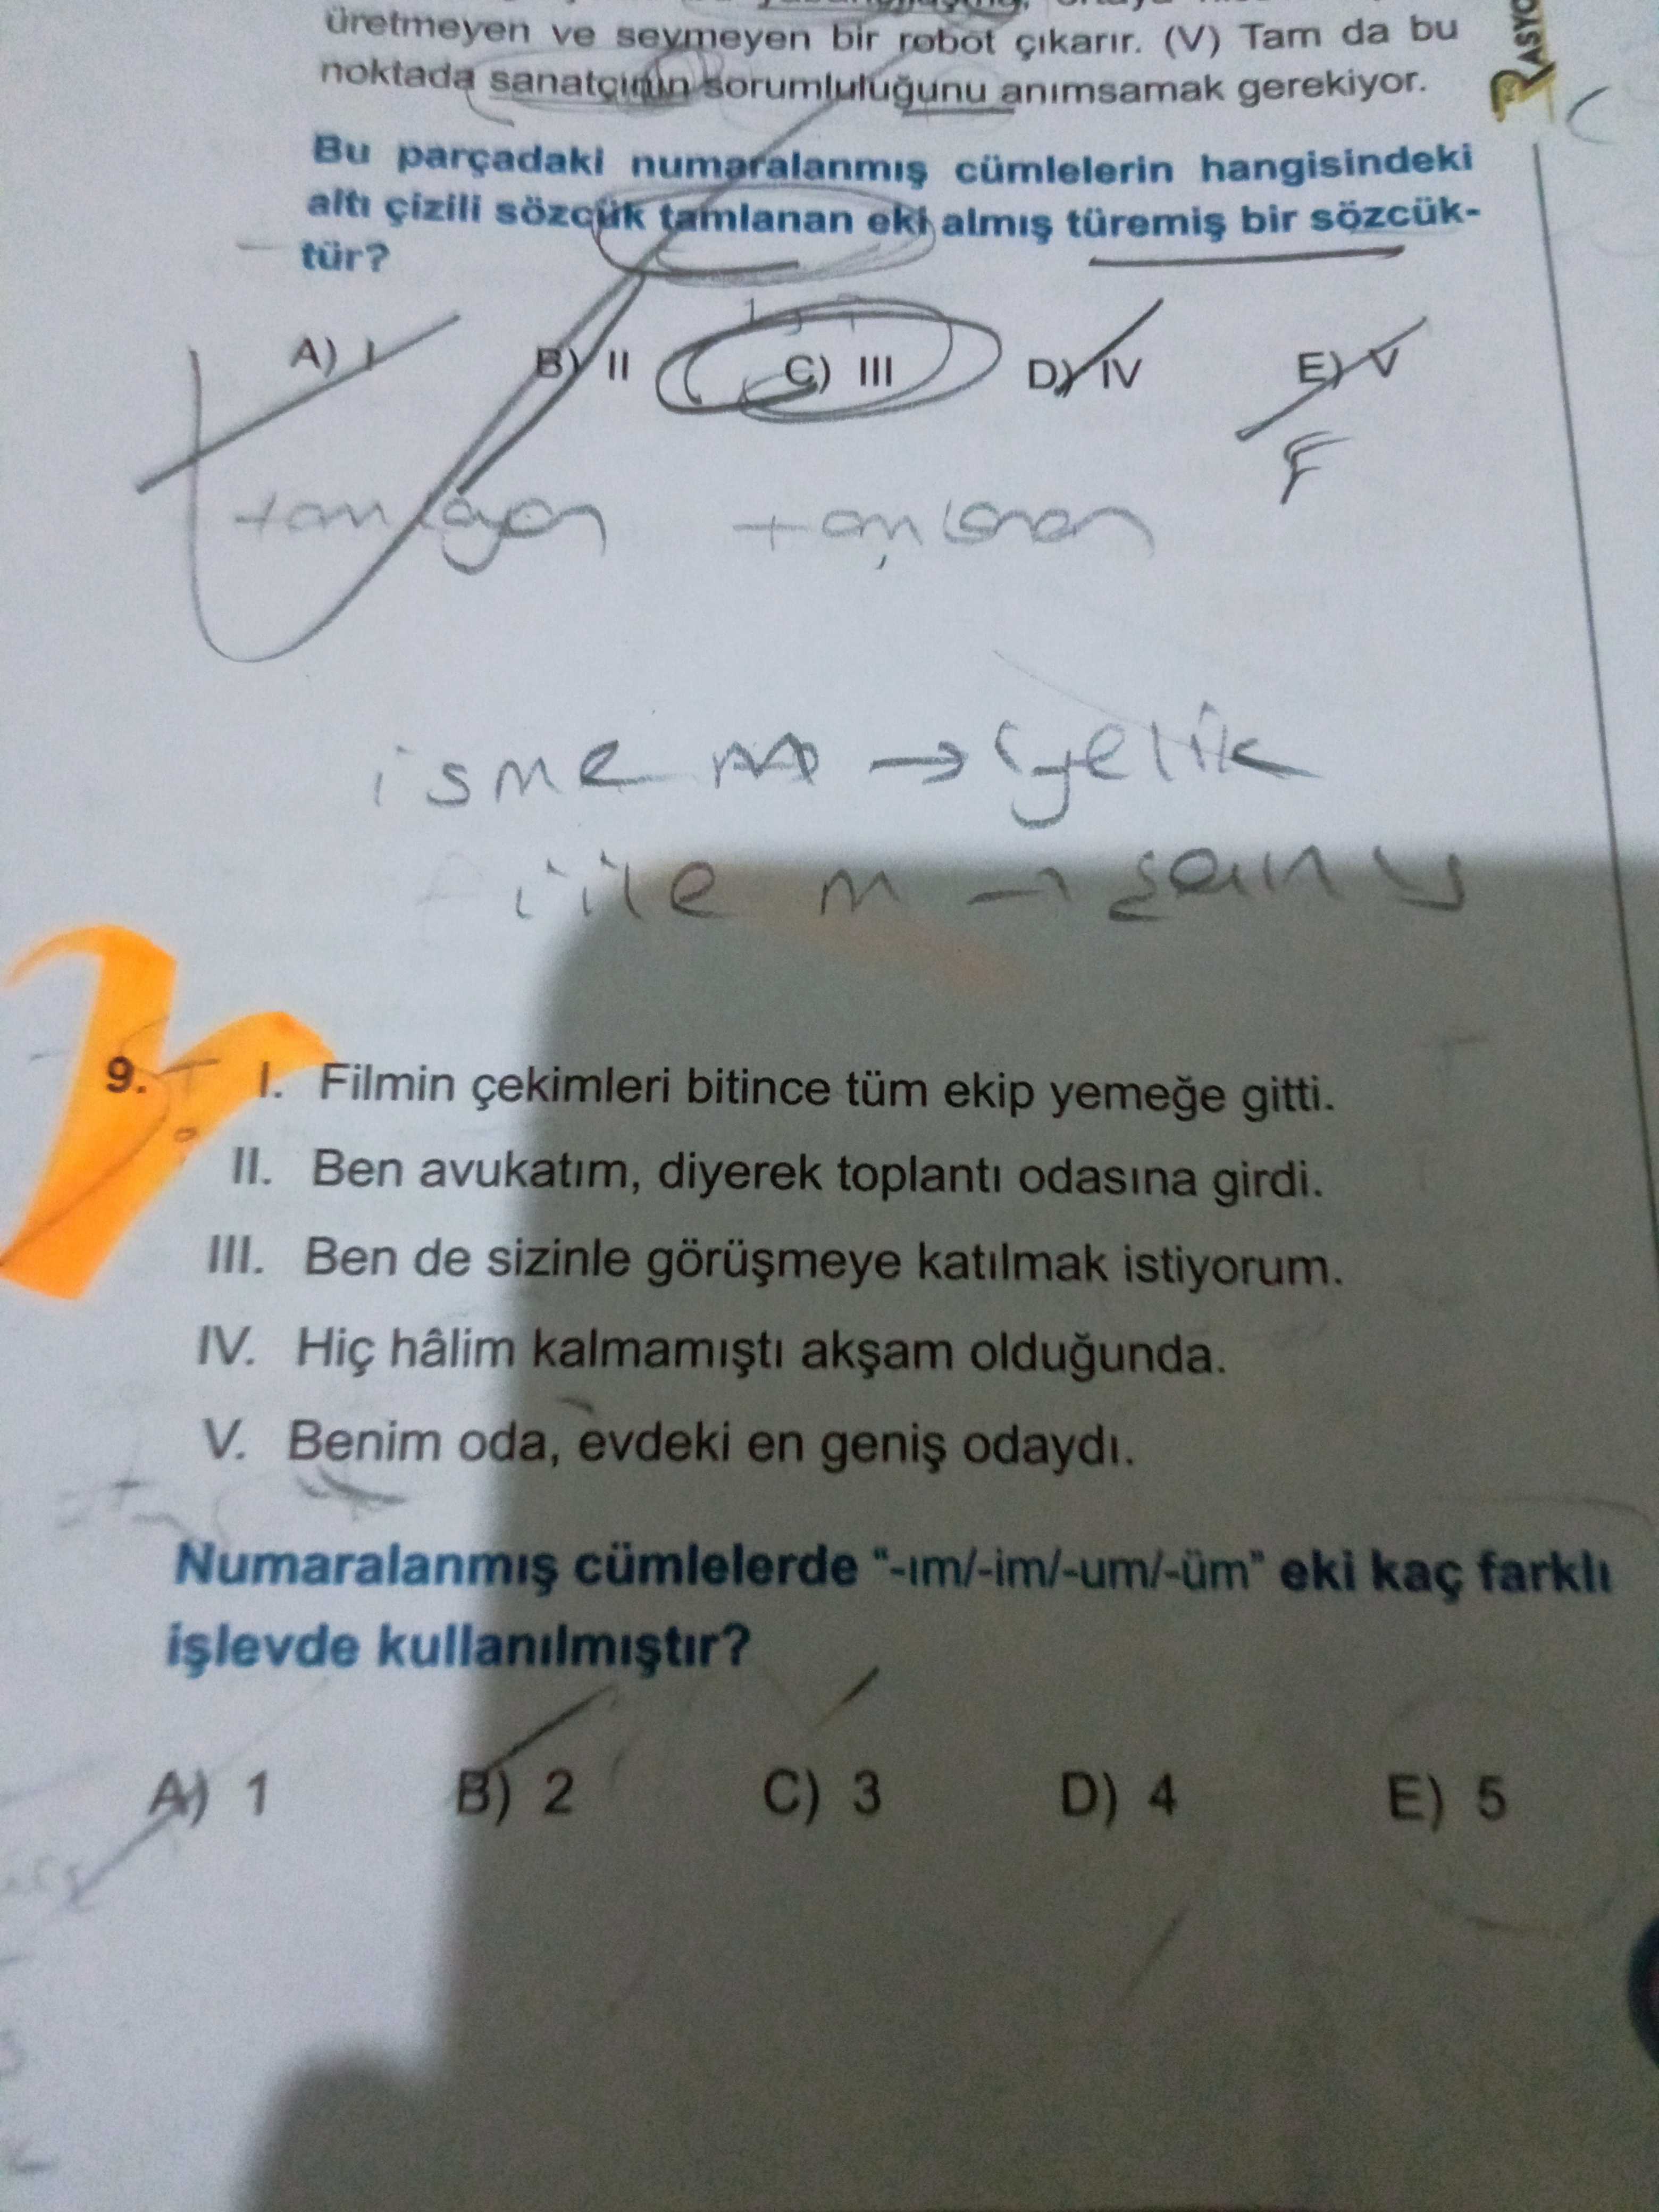 üretmeyen ve sevmeyen bir robot çıkarır. (V) Tam da bu
noktada sanatçının sorumluluğunu anımsamak gerekiyor.
Bu parçadaki numaralanmış cümlelerin hangisindeki
altı çizili sözcük tamlanan eki almış türemiş bir sözcük-
tür?
A) I B) II C) III D) IV E) V
F
tamlayan tamlanan
isme m → iyelik
fiile m → şahıs
9. I. Filmin çekimleri bitince tüm ekip yemeğe gitti.
II. Ben avukatım, diyerek toplantı odasına girdi.
III. Ben de sizinle görüşmeye katılmak istiyorum.
IV. Hiç hâlim kalmamıştı akşam olduğunda.
V. Benim oda, evdeki en geniş odaydı.
Numaralanmış cümlelerde "-ım/-im/-um/-üm" eki kaç farklı
işlevde kullanılmıştır?
A) 1 B) 2 C) 3 D) 4 E) 5